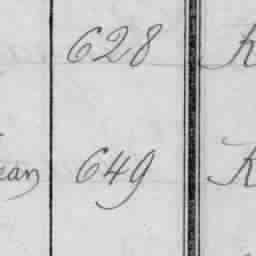 628 K
ean 649 K